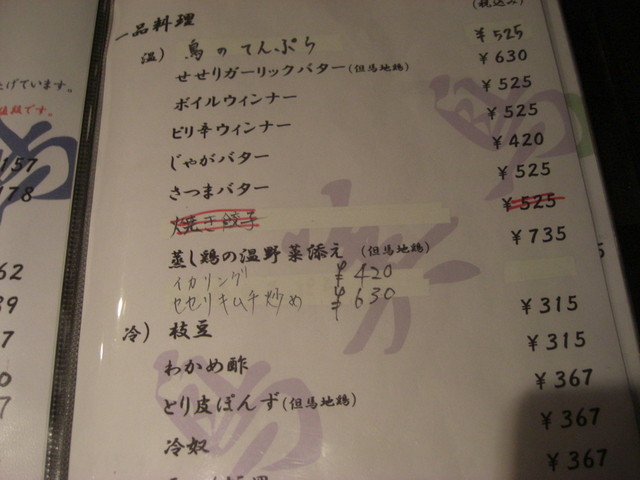 げています。
値段です。
157
178
62
39
7
0
7
一品料理 (税込み)
温)鳥のてんぷら ¥525
せせりガーリックバター(但馬地鶏) ¥630
ボイルウィンナー ¥525
ピリ辛ウィンナー ¥525
じゃがバター ¥420
さつまバター ¥525
焼き餃子 ¥525
蒸し鶏の温野菜添え (但馬地鶏) ¥735
イカリング ¥420
セセリキムチ炒め ¥630
冷) 枝豆 ¥315
わかめ酢 ¥315
とり皮ぽんず(但馬地鶏) ¥367
冷奴 ¥367
¥367